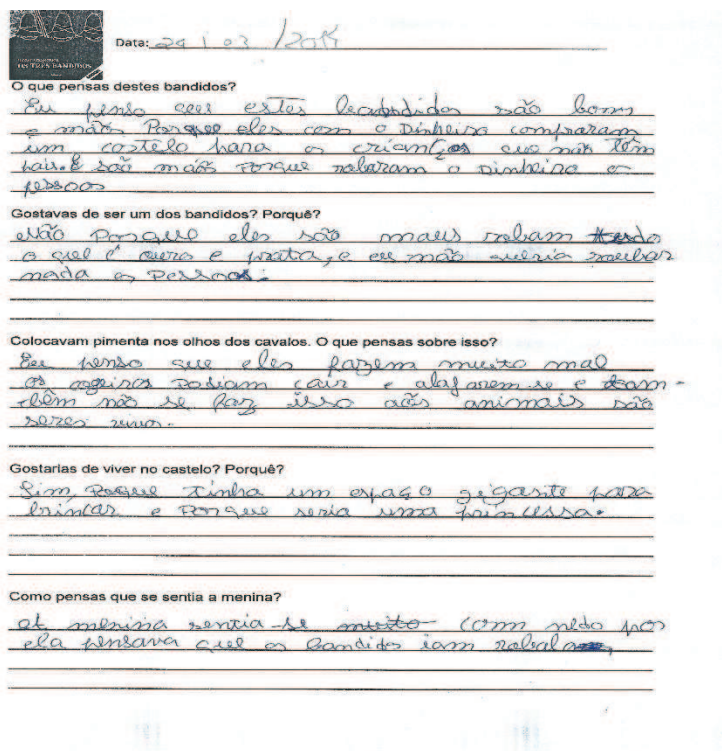 OS TRÊS BANDIDOS
Data: 29 / 03 / 2011
O que pensas destes bandidos?
Eu penso que estes bandidos são bons
e máos Porque eles com o Dinheiro compraram
um costelo para as crianças que não têm
pais. E são máos Porque robaram o Dinheiro as
pessoas
Gostavas de ser um dos bandidos? Porquê?
Não Porque eles são maus robam tudo
o que é ouro e prata, e eu não queria roubar
nada as Pessoas.
Colocavam pimenta nos olhos dos cavalos. O que pensas sobre isso?
Eu penso que eles fazem muito mal
os Podiam cair e e tam-
bêm não se faz isso aos animais são
seres vivos.
Gostarias de viver no castelo? Porquê?
Sim, Porque tinha um espaço gigante para
brincar e Porque seria uma princessa.
Como pensas que se sentia a menina?
A menina sentia-se muito com medo pos
ela pensava que os bandidos iam